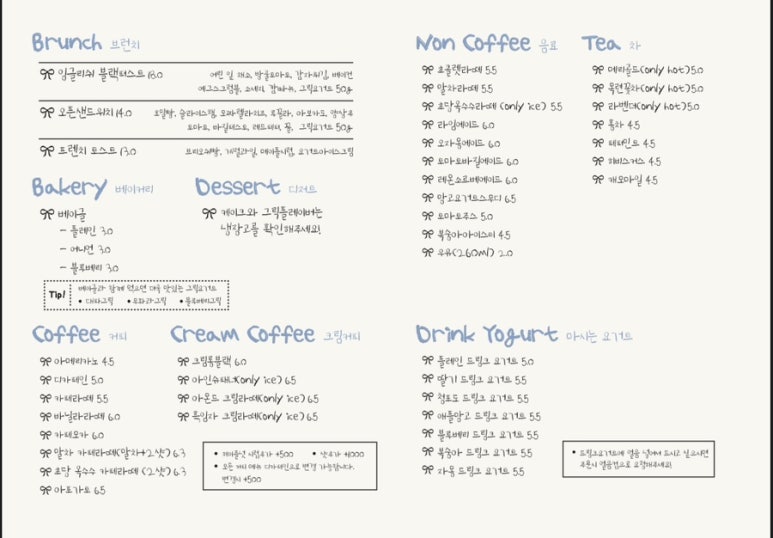 Brunch 브런치
잉글리쉬 블랙퍼스트 18.0
어린 잎 채소, 방울토마토, 감자튀김, 베이컨
에그스크럼블, 소세지, 그릭요거트 50g
오픈샌드위치 14.0
호밀빵, 슬라이스햄, 모짜렐라치즈, 루꼴라, 아보카도, 양상추
토마토, 바질페스트, 꿀, 그릭요거트 50g
프렌치 토스트 13.0
브리오쉬빵, 계절과일, 메이플시럽, 요거트아이스크림
Bakery 베이커리
베이글
– 플레인 3.0
– 어니언 3.0
– 블루베리 3.0
Tip!
베이글과 함께 먹으면 더욱 맛있는 그릭요거트
• 대파그릭 • 무화과그릭 • 블루베리그릭
Dessert 디저트
케이크와 그릭플레이버는
냉장고를 확인해주세요!
Coffee 커피
아메리카노 4.5
디카페인 5.0
카페라떼 5.5
바닐라라떼 6.0
카페모카 6.0
말차 카페라떼(말차+2샷) 6.3
초당 옥수수 카페라떼 (2샷) 6.3
아포가토 6.5
Cream Coffee 크림커피
크림롱블랙 6.0
아인슈페너(only ice) 6.5
아몬드 크림라떼(only ice) 6.5
흑임자 크림라떼(only ice) 6.5
• 메이플시럽추가 +500 • 샷추가 +1000
• 모든 커피 메뉴 디카페인으로 변경 가능합니다.
변경시 +500
Non Coffee 음료
초콜렛라떼 5.5
말차라떼 5.5
초당옥수수라떼 (only ice) 5.5
라임에이드 6.0
오자몽에이드 6.0
토마토바질에이드 6.0
레몬소르베에이드 6.0
망고요거트스무디 6.5
토마토주스 5.0
복숭아아이스티 4.5
우유(260ml) 2.0
Tea 차
메리골드(only hot) 5.0
목련꽃차(only hot) 5.0
라벤더(only hot) 5.0
홍차 4.5
페퍼민트 4.5
히비스커스 4.5
캐모마일 4.5
Drink Yogurt 마시는 요거트
플레인 드링크 요거트 5.0
딸기 드링크 요거트 5.5
청포도 드링크 요거트 5.5
애플망고 드링크 요거트 5.5
블루베리 드링크 요거트 5.5
복숭아 드링크 요거트 5.5
자몽 드링크 요거트 5.5
• 드링크요거트에 얼음 넣어서 드시고 싶으시면
주문시 얼음컵으로 요청해주세요!